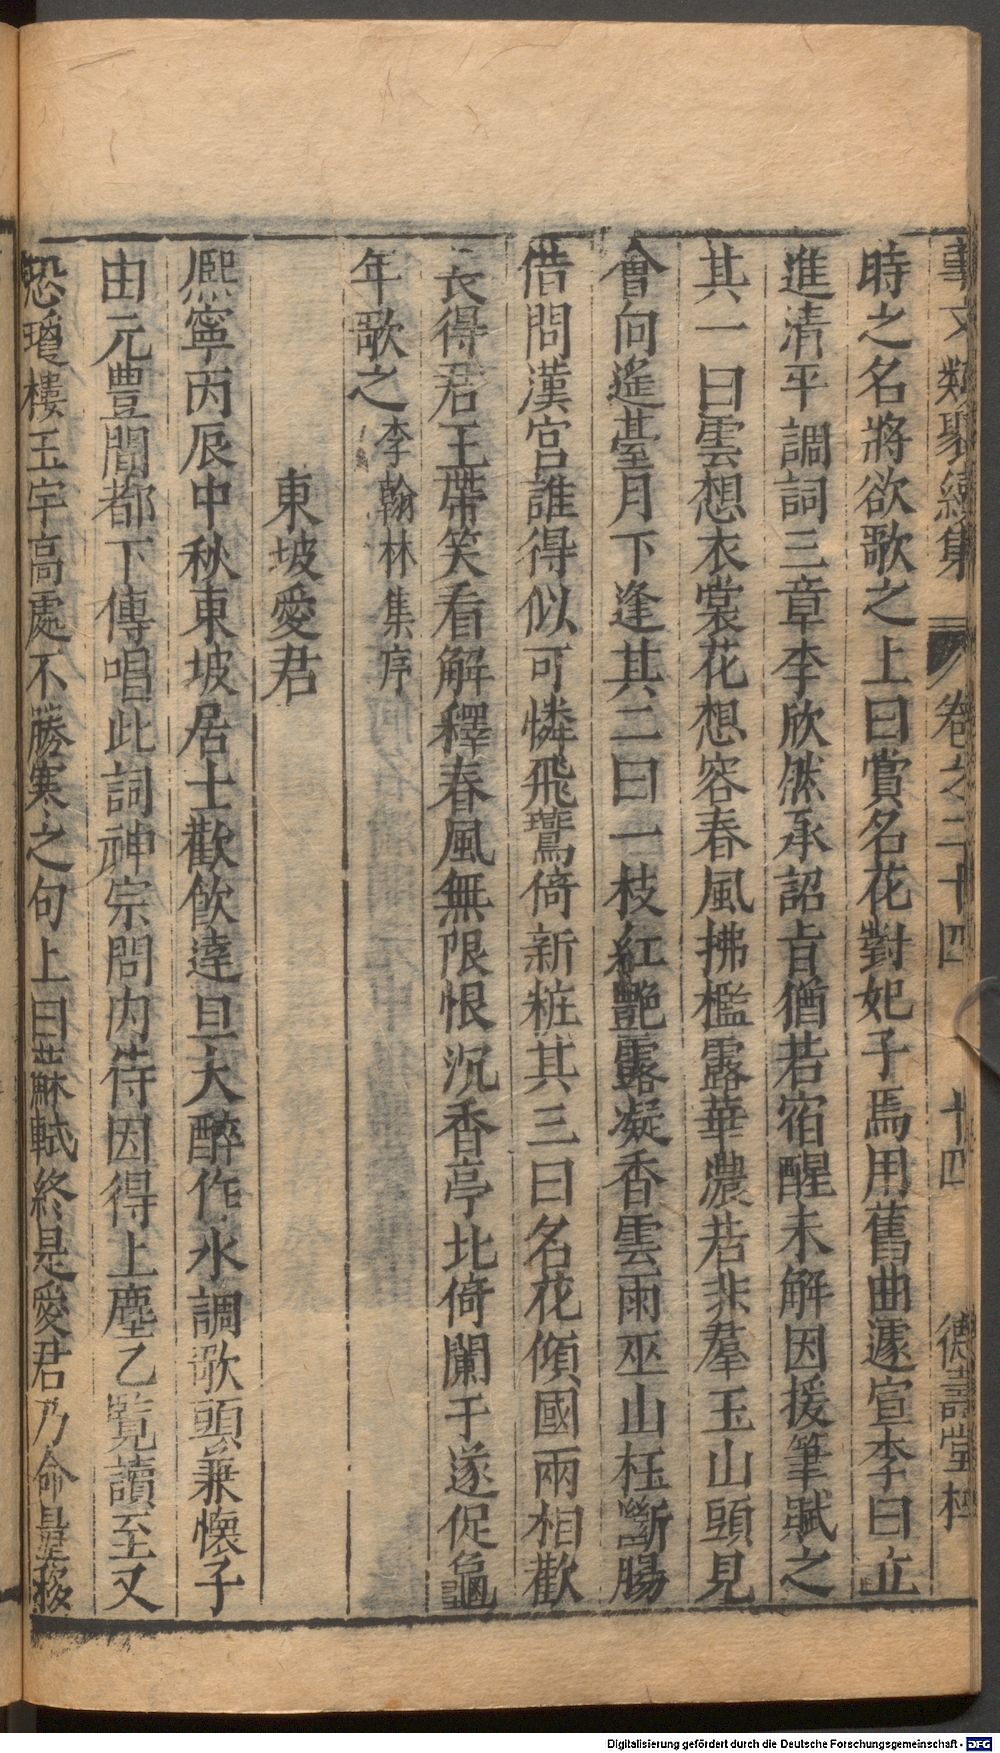 事文類聚續集 卷之二十四 十四 德壽堂梓
時之名將欲歌之上曰賞名花對妃子焉用舊曲遽宣李白立
進清平調詞三章李欣然承詔旨猶若宿酲未解因援筆賦之
其一曰雲想衣裳花想容春風拂檻露華濃若非羣玉山頭見
會向瑤臺月下逢其二曰一枝紅艷露凝香雲雨巫山枉斷腸
借問漢宮誰得似可憐飛鷰倚新粧其三曰名花傾國兩相歡
長得君王帶笑看解釋春風無限恨沉香亭北倚闌干遂促龜
年歌之李翰林集序
東坡愛君
熈寧丙辰中秋東坡居士歡飲達旦大醉作水調歌頭兼懷子
由元豊間都下傳唱此詞神宗問内侍因得上塵乙覧讀至又
恐瓊樓玉宇高處不勝寒之句上曰蘇軾終是愛君乃命量移
Digitalisierung gefördert durch die Deutsche Forschungsgemeinschaft - DFG